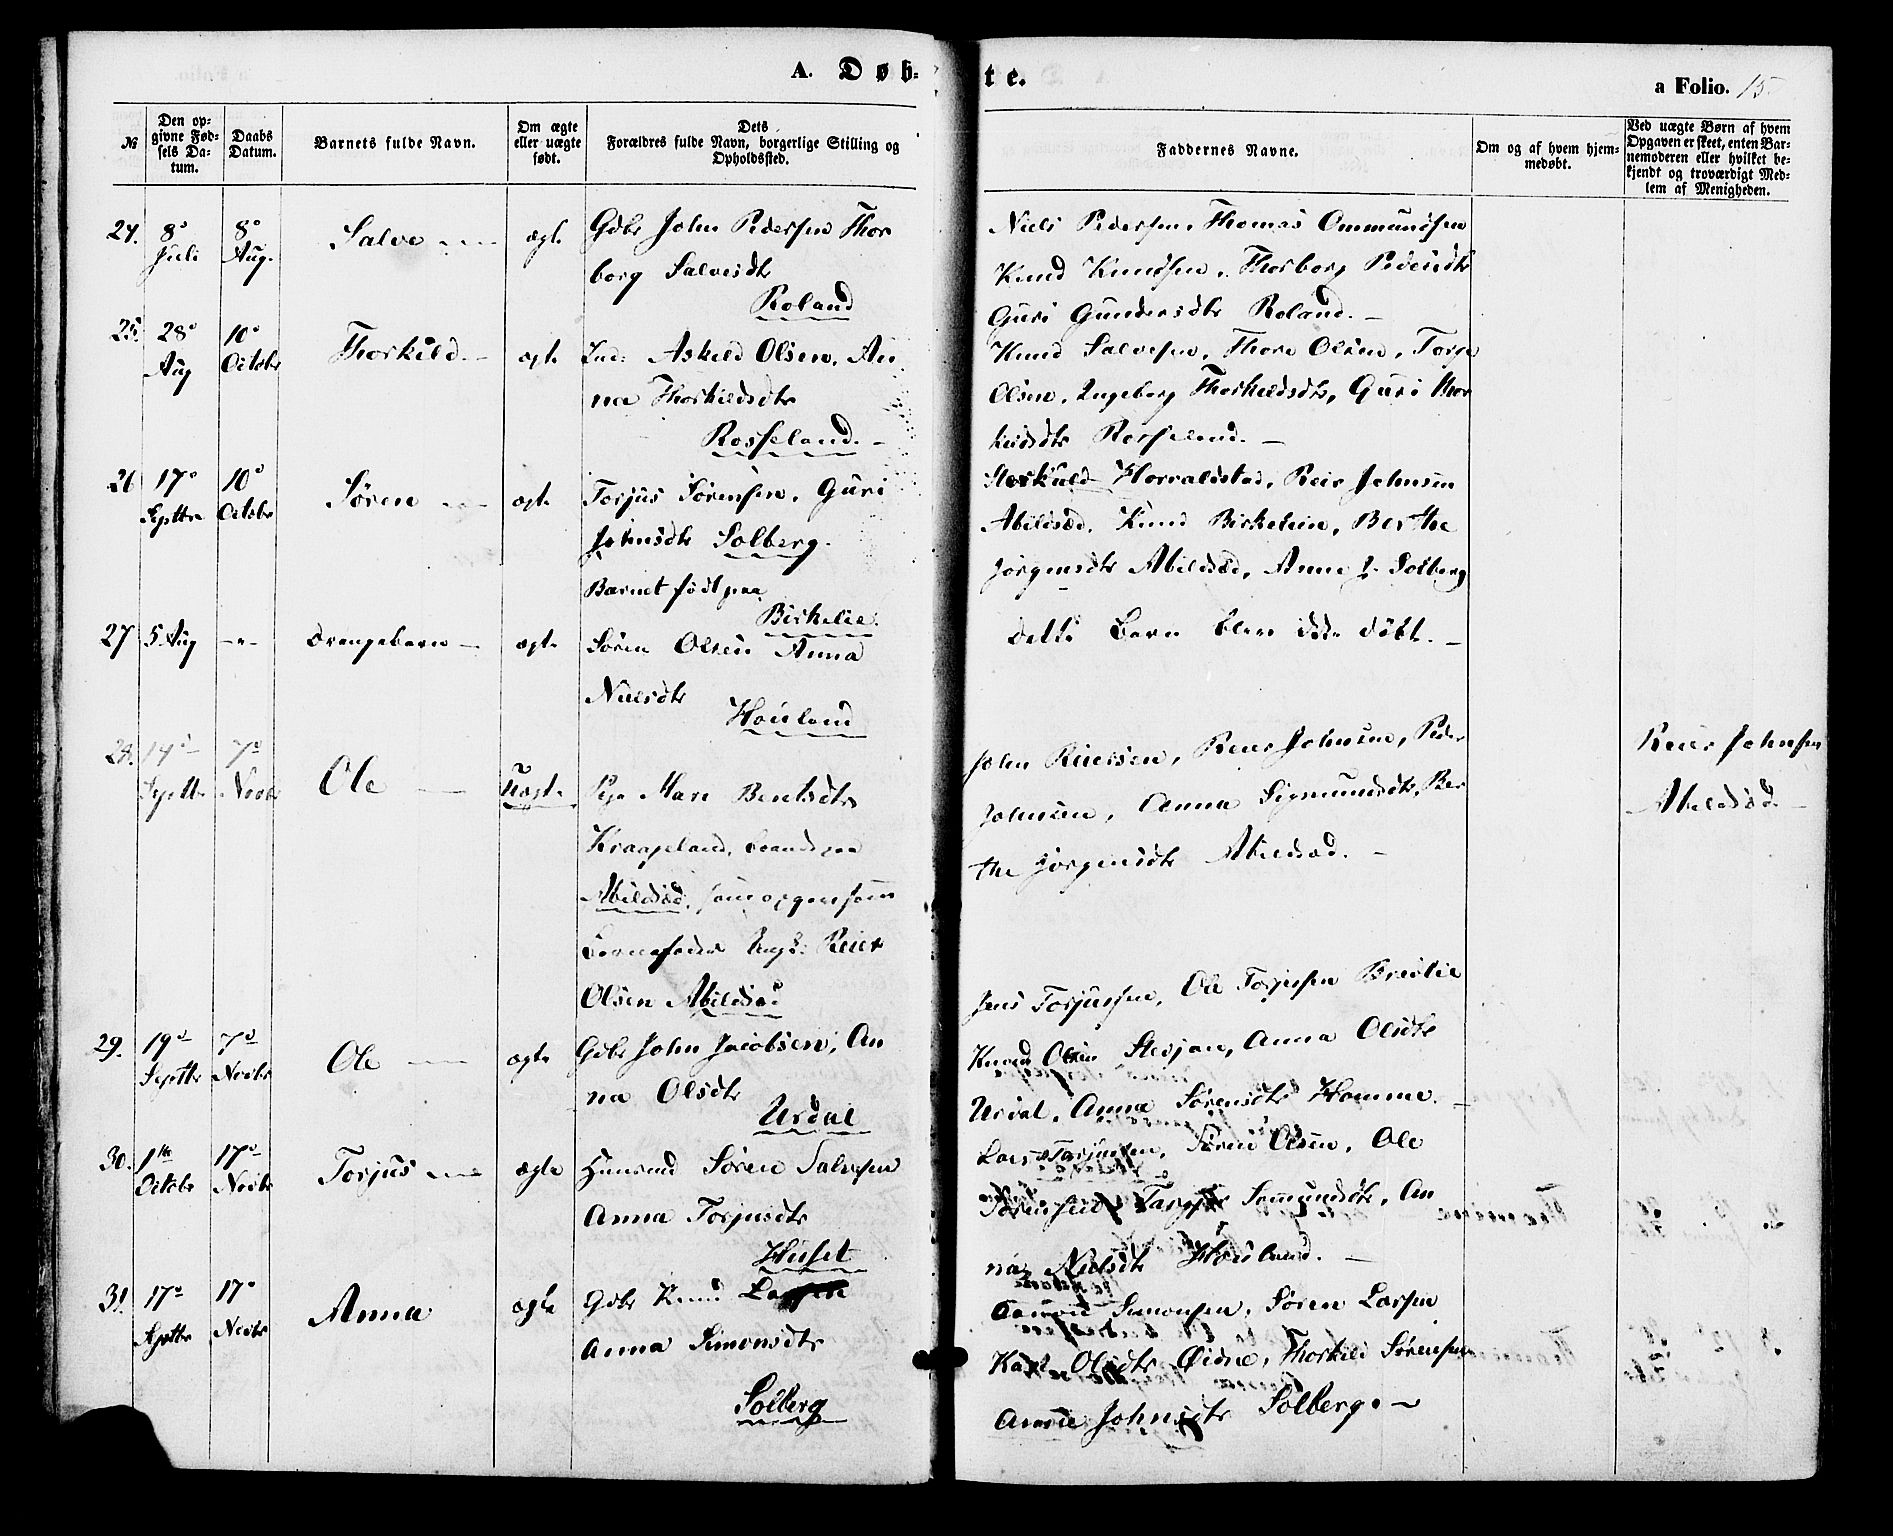 A. Døb-
te.
a Folio. 15
№
Den op-
givne Fød-
sels Da-
tum.
Daabs
Datum.
Barnets fulde Navn.
Om ægte
eller uægte
født.
Dets
Forældres fulde Navn, borgerlige Stilling og
Opholdssted.
Faddernes Navne.
Om og af hvem hjem-
medøbt.
Ved uægte Børn af hvem
Opgaven er skeet, enten Bar-
nemoderen eller hvilket be-
kjendt og troværdigt Med-
lem af Menigheden.
24. 8d Juli 8d Aug. Salve ægte
Gdbr John Pedersen Thor
borg Salvesdtr
Roland
Niels Pedersen, Thomas Ommundsen
Knud Knudsen, Thorborg Pedersdtr
Guri Gundersdtr Roland. -
25. 28d Aug 10d Octobr Thorkild - ægte
Ind: Askild Olsen, An
na Thorkildsdtr
Rosseland. -
Knud Salvesen, Thore Olsen, Torje
Olsen, Ingeborg Thorkildsdtr, Guri Thor
kildsdtr Rosseland. -
26 17d Septbr 10d Octobr Søren ægte
Torjus Sørensen, Guri
Johnsdtr Solberg.
Barnet født paa
Birkelie.
Horraldstad, Reier Johnsen
Abildsød, Knud Birkeleie, Berthe
Jørgensdtr Abildsød, Anne J. Solberg
27 5 Aug -"- Drengebarn - ægte
Søren Olsen Anna
Nielsdtr
Houland
Dette Barn blev ikke døbt. -
28. 14d Septbr 7d Novbr Ole Uægte
Pige Mari Bentsdtr
Kraageland, boende paa
Abildsød, som opgav som
Barnefader Ungk: Reier
Olsen Abildsød
John Reiersen, Reier Johnsen, Peder
Johnsen, Anna Sigmundsdtr, Ber
the Jørgensdtr Abildsød. -
Reier Johnsen
Abildsød -
29. 19d Septbr 7d Novbr Ole ægte
Gdbr John Jacobsen, An
na Olsdtr
Urdal
Jens Torjussen, Ole Torjusen Breilie
Knud Olsen Sterjan, Anna Olsdtr
Urdal, Anna Sørensdtr Homme. -
30. 1ste Octobr 17d Novbr Torjus ægte
Huusmd Søren Salvesen
Anna Torjusdtr
Huset
Lars Torjussen, Søren Olsen, Ole
Sørensen, Somundsdtr, An
na Nielsdtr Houland. -
31. 17d Septbr 17d Novbr Anna ægte
Gdbr Knud Larsen
Anna Simonsdtr
Solberg
Simonsen, Søren Larsen
Kari Olsdtr Øidne, Thorkild Sørensen
Johnsdtr Solberg. -